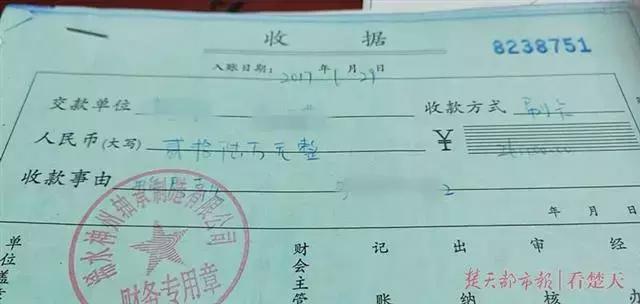 收 据
8238751
入账日期: 2017 年 1 月 29 日
交款单位 收款方式 刷卡
人民币(大写) 贰拾陆万元整 ¥
收款事由
年 月 日
单位盖 财会主管 记账 出纳 审核 经
轴承制造有限公司
财务专用章
楚天都市报 看楚天